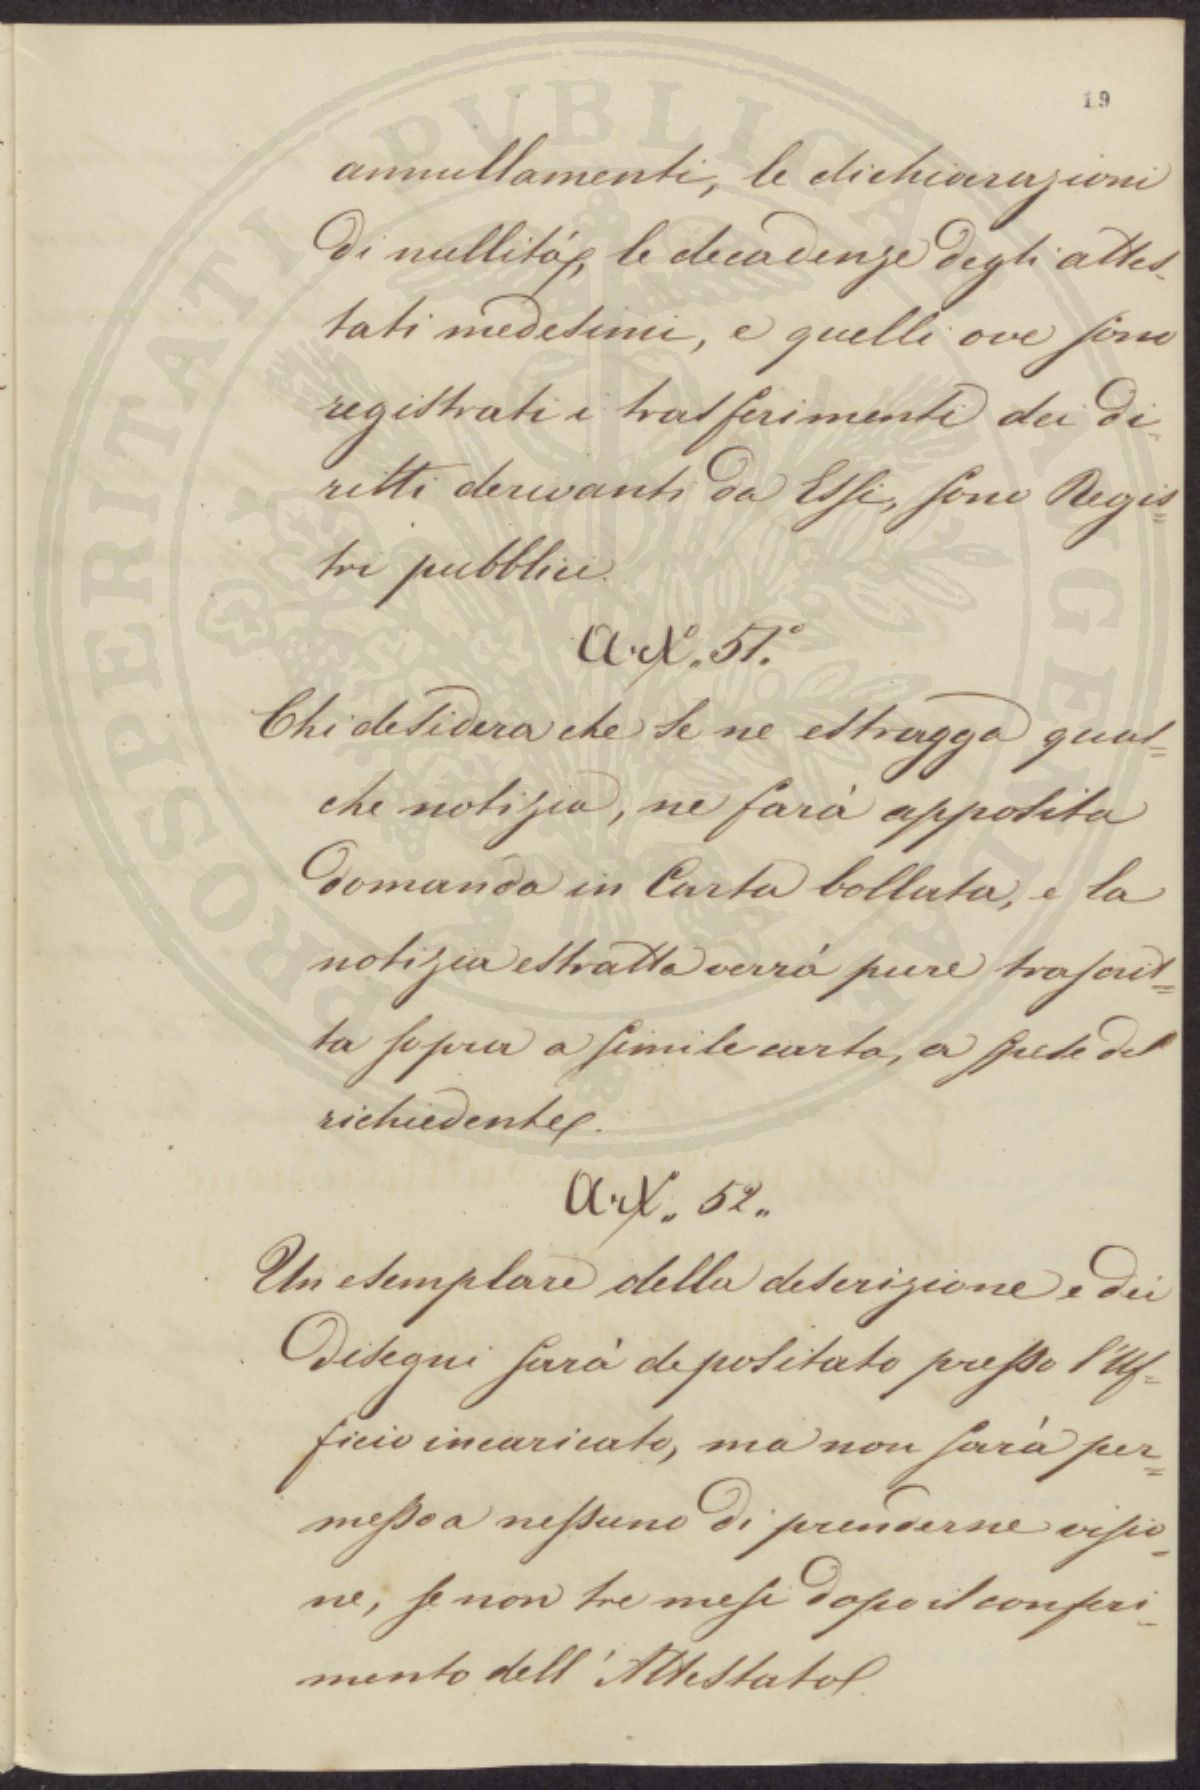 19
annullamenti, le dichiarazioni
di nullità, le decadenze degli attes-
tati medesimi, e quelli ove sono
registrati i trasferimenti dei di-
ritti derivanti da Essi, sono Regis=
tri pubblici.
Art.º 51.º
Chi desidera che se ne estragga qual=
che notizia, ne farà apposita
domanda in Carta bollata, e la
notizia estratta verrà pure trascrit=
ta sopra a simile carta, a spese del
richiedente.
Art.º 52.
Un esemplare della descrizione e dei
Disegni sarà depositato presso l'Uf=
ficio incaricato, ma non sarà per=
messo a nessuno di prenderne visio-
ne, se non tre mesi dopo il conferi-
mento dell'Attestato.
PROSPERITATI PUBLICAE AUGENDAE